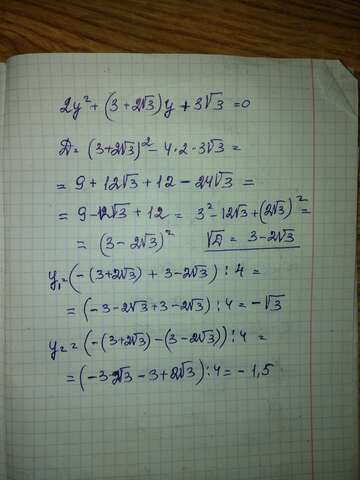 2y² + (3 + 2√3)y + 3√3 = 0
D = (3+2√3)² - 4·2·3√3 =
= 9 + 12√3 + 12 - 24√3 =
= 9 - 12√3 + 12 = 3² - 12√3 + (2√3)² =
= (3 - 2√3)² √D = 3 - 2√3
y₁ = (-(3+2√3) + 3 - 2√3) : 4 =
= (-3 - 2√3 + 3 - 2√3) : 4 = -√3
y₂ = (-(3+2√3) - (3 - 2√3)) : 4 =
= (-3 - 2√3 - 3 + 2√3) : 4 = -1,5